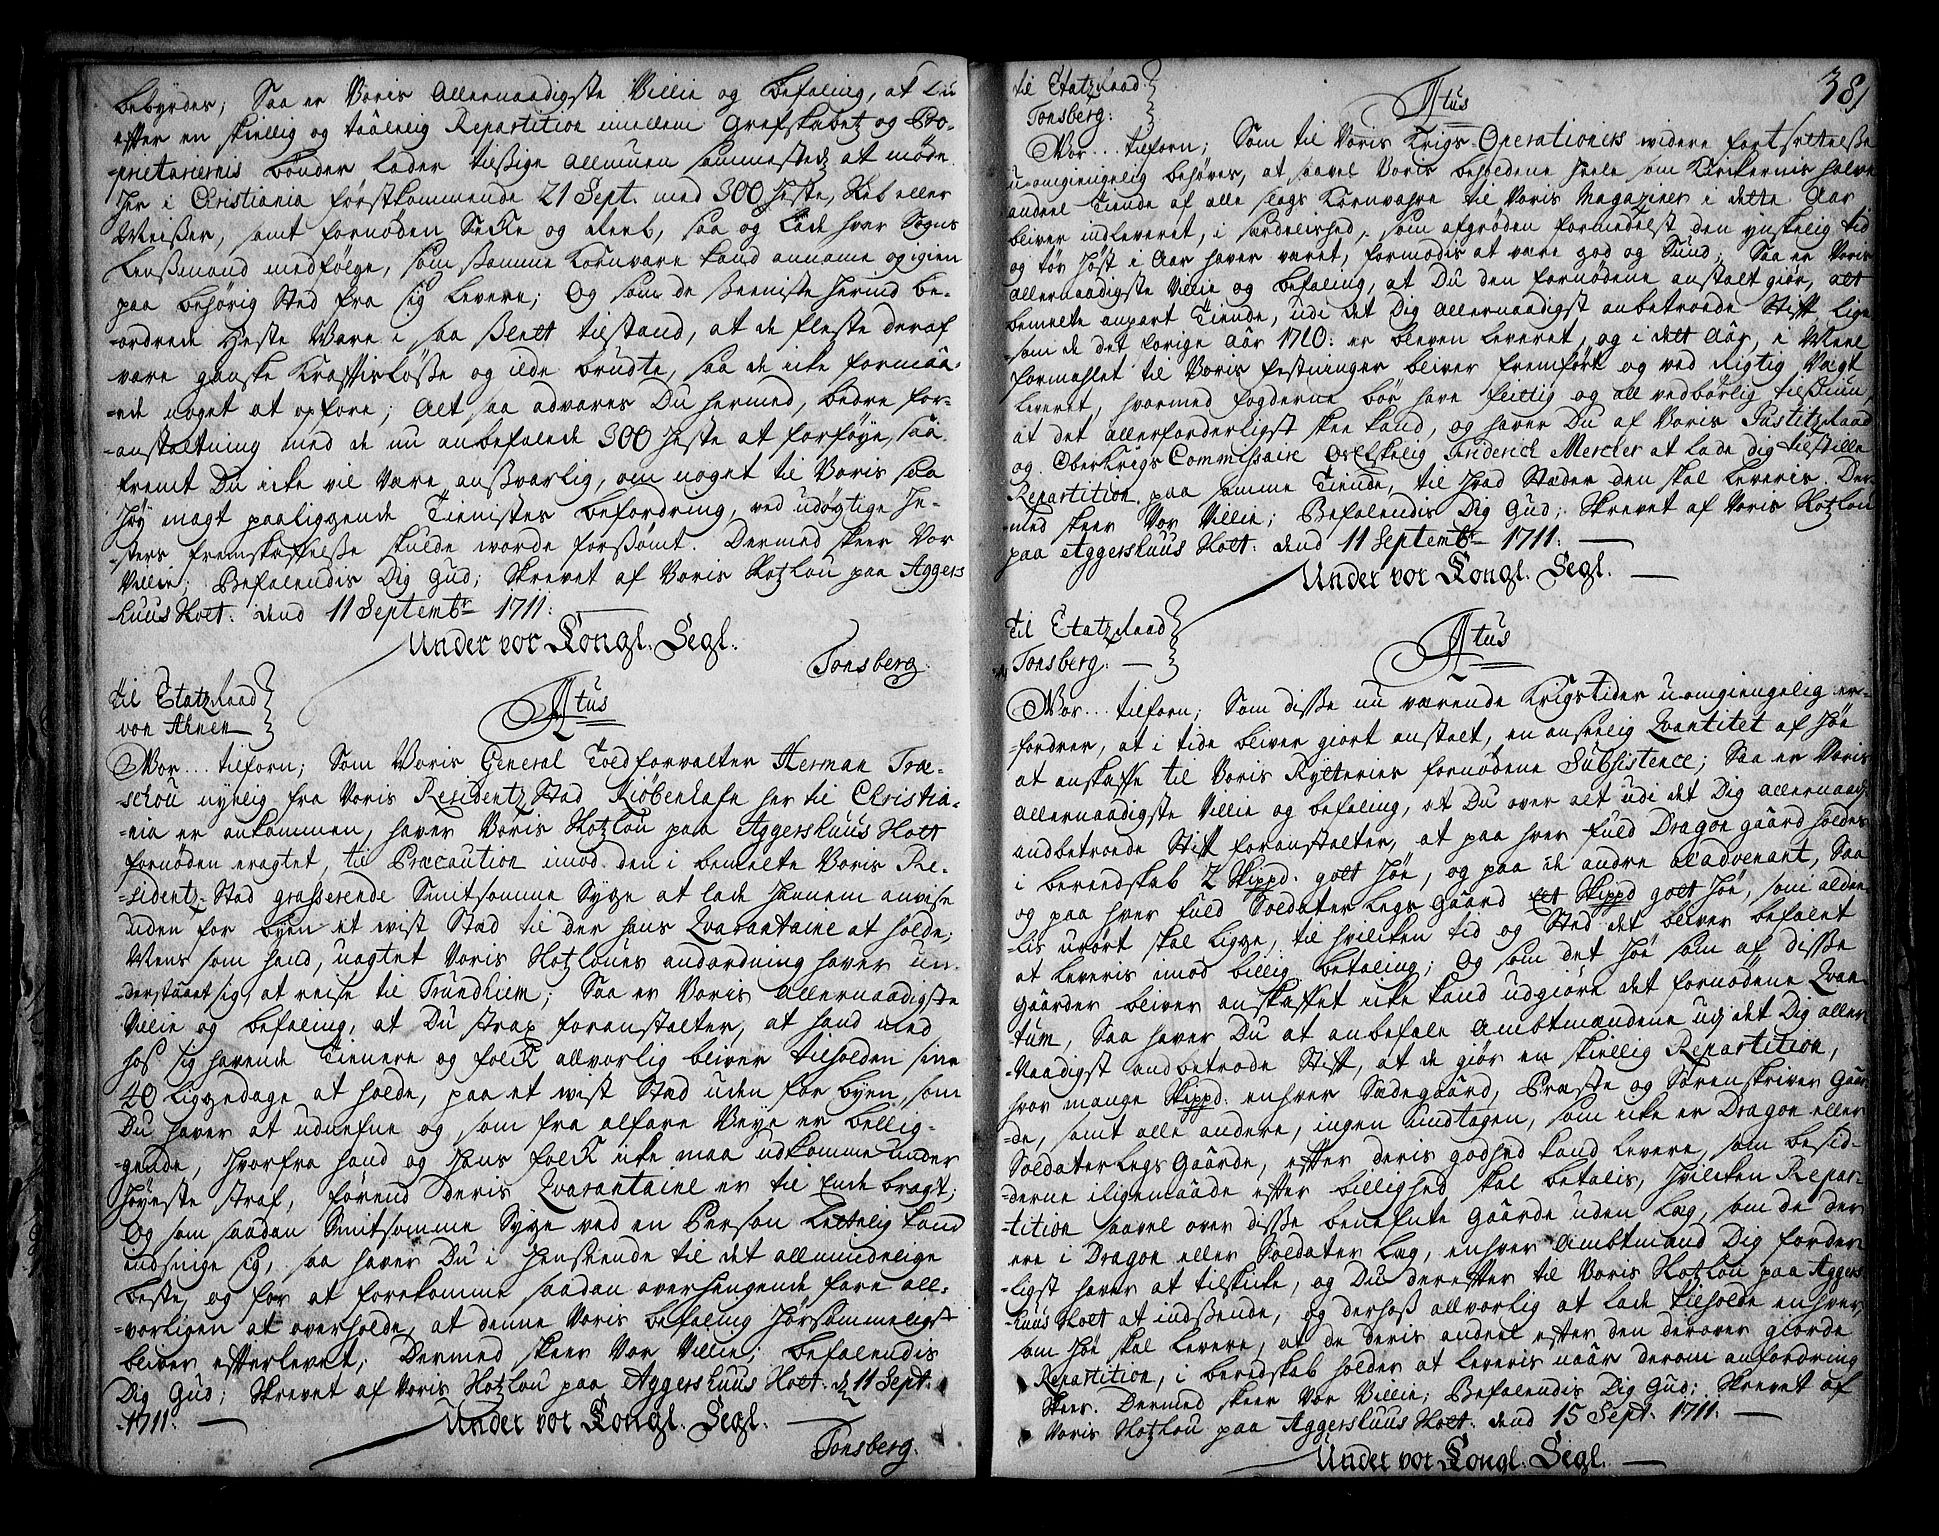 bebyrdes; Saa er Voris Allernaadigste Villie og Befaling, at Du
efter en skiellig og taalelig Repartition imellem Grefskabetz og Pro-
-prietariernis bønder lader tilsige Allmuen sammestedz at møde
her i Christiania førstkommende 21 Sept. med 300 Heste, Kløb eller
Meisser, samt fornøden Secke og Reeb, saa og lade hver Sogns
Lenssmand medfølge, som samme Kornvare kand anname og igien
paa behørig Sted fra sig levere; Og som de seeniste herind be-
-ordrede Heste Vare i saa slett tilstand, at de fleste deraf
vare ganske Krafftisløsse og ilde brudte, saa de icke formaa-
-ede noget at opføre; Alt saa advares Du hermed, bedre for-
-anstaltning med de nu anbefalede 300 Heste at forføye, saa-
fremt Du icke vil være ansvarlig, om noget til Voris saa
høy magt paaliggende Tienistes befordring, ved udøgtige He-
-sters fremskaffelsse skulde worde forssømt. Dermed skeer Vor
Villie; Befalendis Dig Gud; Skrevet af Voris Slotzlou paa Aggers
huus Slott. dend 11 Septembr 1711.
Under vor Kongl. Segl.
Tonsberg.
Til Etatzraad
von Ahnen
Titus
Vor... tilforn; Som Voris General Toldforvalter Herman Træ-
schou nylig fra Voris Residentz Stad Kiøbenhafn her til Christia-
-nia er ankommen, haver Voris Slotzlou paa Aggershuus Slott
fornøden eragtet, til Præcaution imod den i bemelte Voris Re-
-sidentz-Stad grasserende Smitsomme Syge at lade hannem anvise
uden for byen et wist Stad til der hans Qvarantaine at holde;
Mens som hand, uagtet Voris Slotzloues anordning haver un-
-derstaaet sig, at reise til Trundhiem; Saa er Voris Allernaadigste
Villie og befaling, at Du strax foranstalter, at hand med
hos sig havende Tienere og folck alvorlig bliver tilholden sine
40 Liggedage at holde, paa et wist Stad uden for byen, som
Du haver at udnefne og som fra alfare Veye er bellig-
-gende, hvorfra hand og hans folck icke maa udkomme under
høyeste straf, førend deris Qvarantaine er til Ende bragt;
Og som saadan Smitsomme Syge ved en Person lettelig kand
indsnige sig, saa haver Du i henseende til det allmindelige
beste, og for at forekomme saadan overhengende fare all-
-vorligen at overholde, at denne Voris befaling hørsommeligst
bliver efterlevet; Dermed skeer Vor Villie; befalendis
Dig Gud; Skrevet af Voris Slotzlou paa Aggershuus Slott. d. 11 Sept.
1711.
Under vor Kongl. Segl.
Tonsberg.
381
Til Etatzraad
Tonsberg:
Titus
Vor... tilforn; Som til Voris Krigs-Operationers widere fortsettelsse
uomgiengelig behøves, at saavel Voris beholdene heele som Kirkernis halve
andeel Tiende af alle slags Kornvahre til Voris Magaziner i dette Aar
bliver indleveret, i særdelished, som afgrøden formedelst den ynskelig tid
og tør høst i Aar haver været, formodis at være god og Sund; Saa er Voris
allernaadigste Villie og befaling, at Du den fornødene anstalt giør, alt
bemelte anpart Tiende, udi det Dig allernaadigst anbetroede Stift lige
-som de det forige Aar 1710. er bleven leveret, og i dett Aar, i Meel
formahlet til Voris festninger bliver fremført og ved rigtig Vægt
leveret, hvormed fogderne bør have flittig og all vedbørlig tilssiun,
at det allerforderligst skee kand, og haver Du af Voris Justitzraad
og OberKrigsCommissaire Velfelig Friderich Mercker at lade dig tilstille
Repartition paa samme Tiende, til hvad Stæder den skal leveris. Der-
-med skeer Vor Villie; Befalendis Dig Gud; Skrevet af Voris Slotzlou
paa Aggershuus Slott. dend 11 Septembr 1711.
Under vor Kongl. Segl.
Til Etatzraad
Tonsberg.
Titus
Vor... tilforn; Som disse nu værende Krigstider uomgiengelig er-
-fordrer, at i tide bliver giort anstalt, en anseelig Qvantitet af Høe
at anskaffe til Voris Rytteries fornødene Subsistence; Saa er Voris
allernaadigste Villie og befaling, at Du over alt udi det Dig allernaad.
andbetroede Stift foranstalter, at paa hver fuld Dragon gaard holdes
i beredskab 2 Skippd. gott Høe, og paa de andre al'advenant, Saa
og paa hver fuld Soldater Legs Gaard et Skippd gott Høe, som alde-
-lis urørt skal ligge, til hvilcken tid og Sted det bliver befalet
at leveris imod billig betaling; Og som det Høe som af disse
Gaarder bliver anskaffet icke kand udgiøre det fornødene Qvan-
-tum, Saa haver Du at anbefale Ambtmændene udj det Dig aller-
-naadigst andbetroede Stift, at de giør en skiellig Repartition,
hvor mange Skippd. enhver Sædegaard, Præste og Sorenskriver Gaar-
-de, samt alle andere, ingen undtagen, som icke er Dragon eller
Soldater Legs Gaarde, efter deris godhed kand levere, som besid-
-derne iligemaade efter billighed skal betalis, hvilcken Repar-
tition saavel over disse benefnte Gaarde uden læg, som de der
ere i Dragon eller Soldater læg, enhver Ambtmand Dig forder-
-ligst haver at tilskicke, og Du derefter til Voris Slotzlou paa Aggers
-huus Slott at indssende, og derhos allvorlig at lade tilholde enhver,
om Høe skal levere, at de deris andeel efter den derover giorde
Repartition, i beredskab holder at leveris naar derom anfordring
skeer. Dermed skeer Vor Villie; Befalendis Dig Gud; Skrevet af
Voris Slotzlou paa Aggershuus Slott. dend 15 Sept. 1711.
Under vor Kongl. Segl.